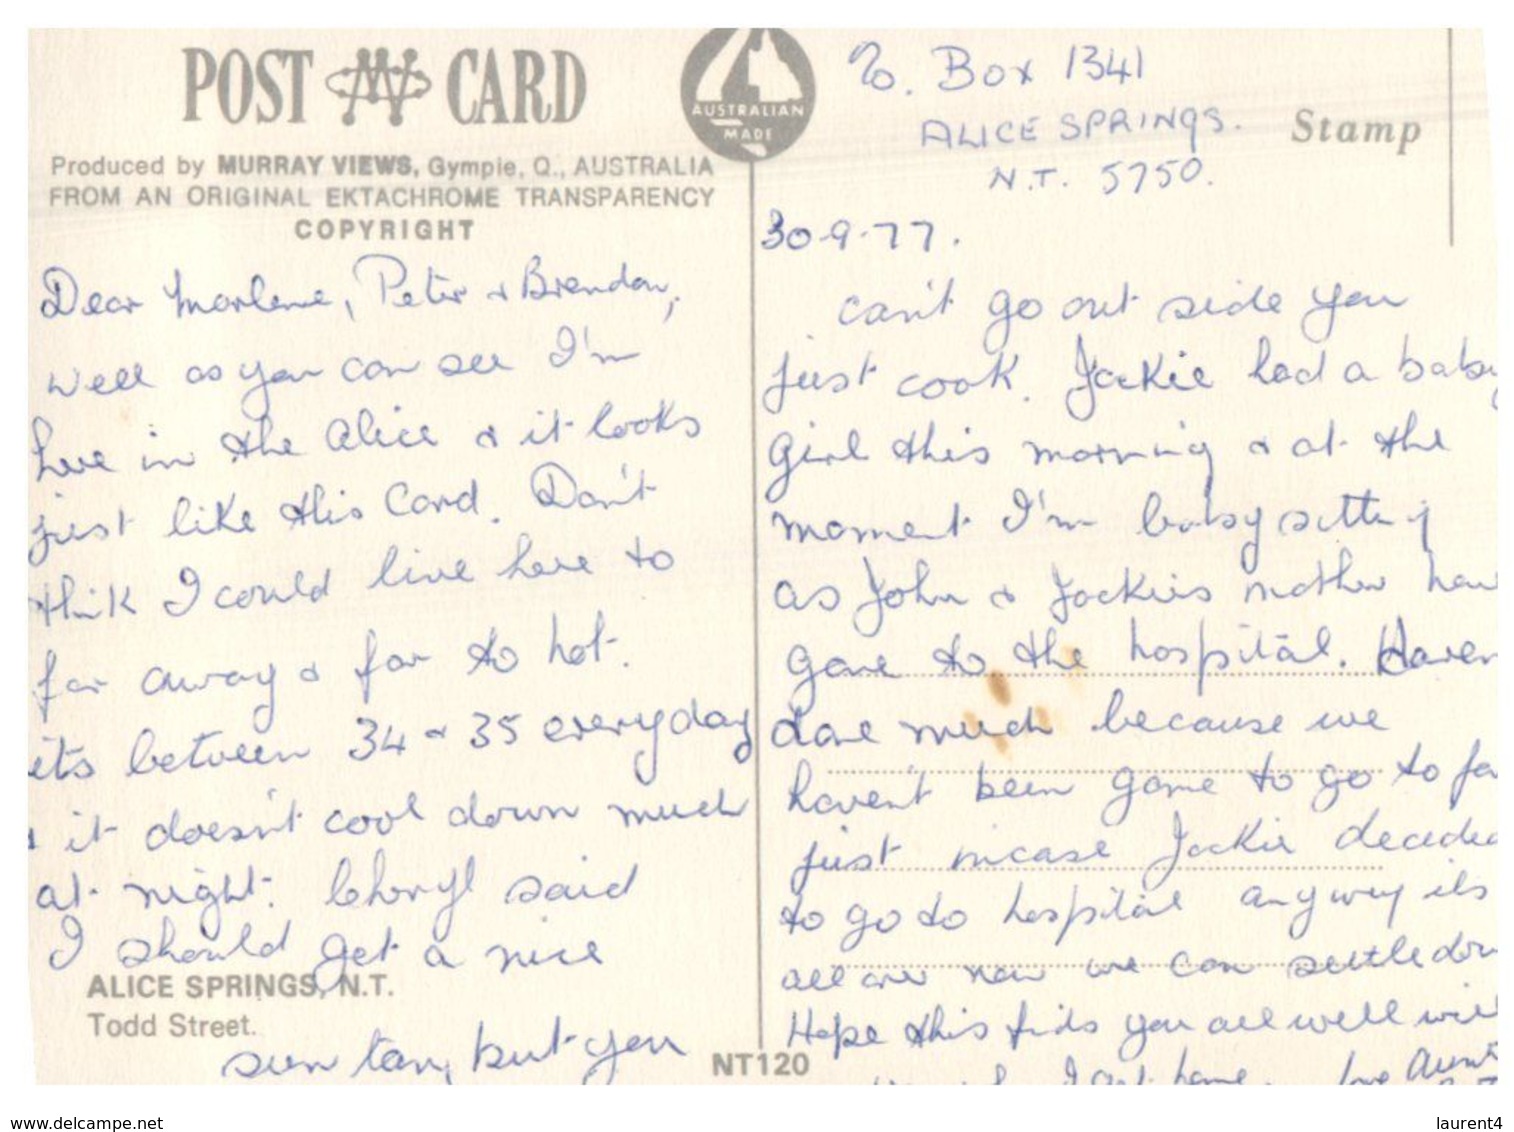 POST CARD
AUSTRALIAN
MADE
Produced by MURRAY VIEWS, Gympie, Q., AUSTRALIA
FROM AN ORIGINAL EKTACHROME TRANSPARENCY
COPYRIGHT
Dear Marlene, Peter & Brendan,
Well as you can see I'm
here in the Alice & it looks
just like this Card. Don't
think I could live here to
far away & far to hot.
its between 34 & 35 everyday
& it doesn't cool down much
at night. Cheryl said
I should get a nice
ALICE SPRINGS, N.T.
Todd Street.
sun tan, but you
NT120
Stamp
℅. Box 1341
ALICE SPRINGS.
N.T. 5750.
30-9-77.
can't go out side you
just cook. Jackie had a baby
girl this morning & at the
moment I'm babysitting
as John & Jackies mother have
gone to the hospital. Haven
done much because we
haven't been game to go to fa
just incase Jackie decided
to go to hospital anyway its
all over now we can settle dow
Hope this finds you all well wil
I get home. love Aunt
www.delcampe.net
laurent4